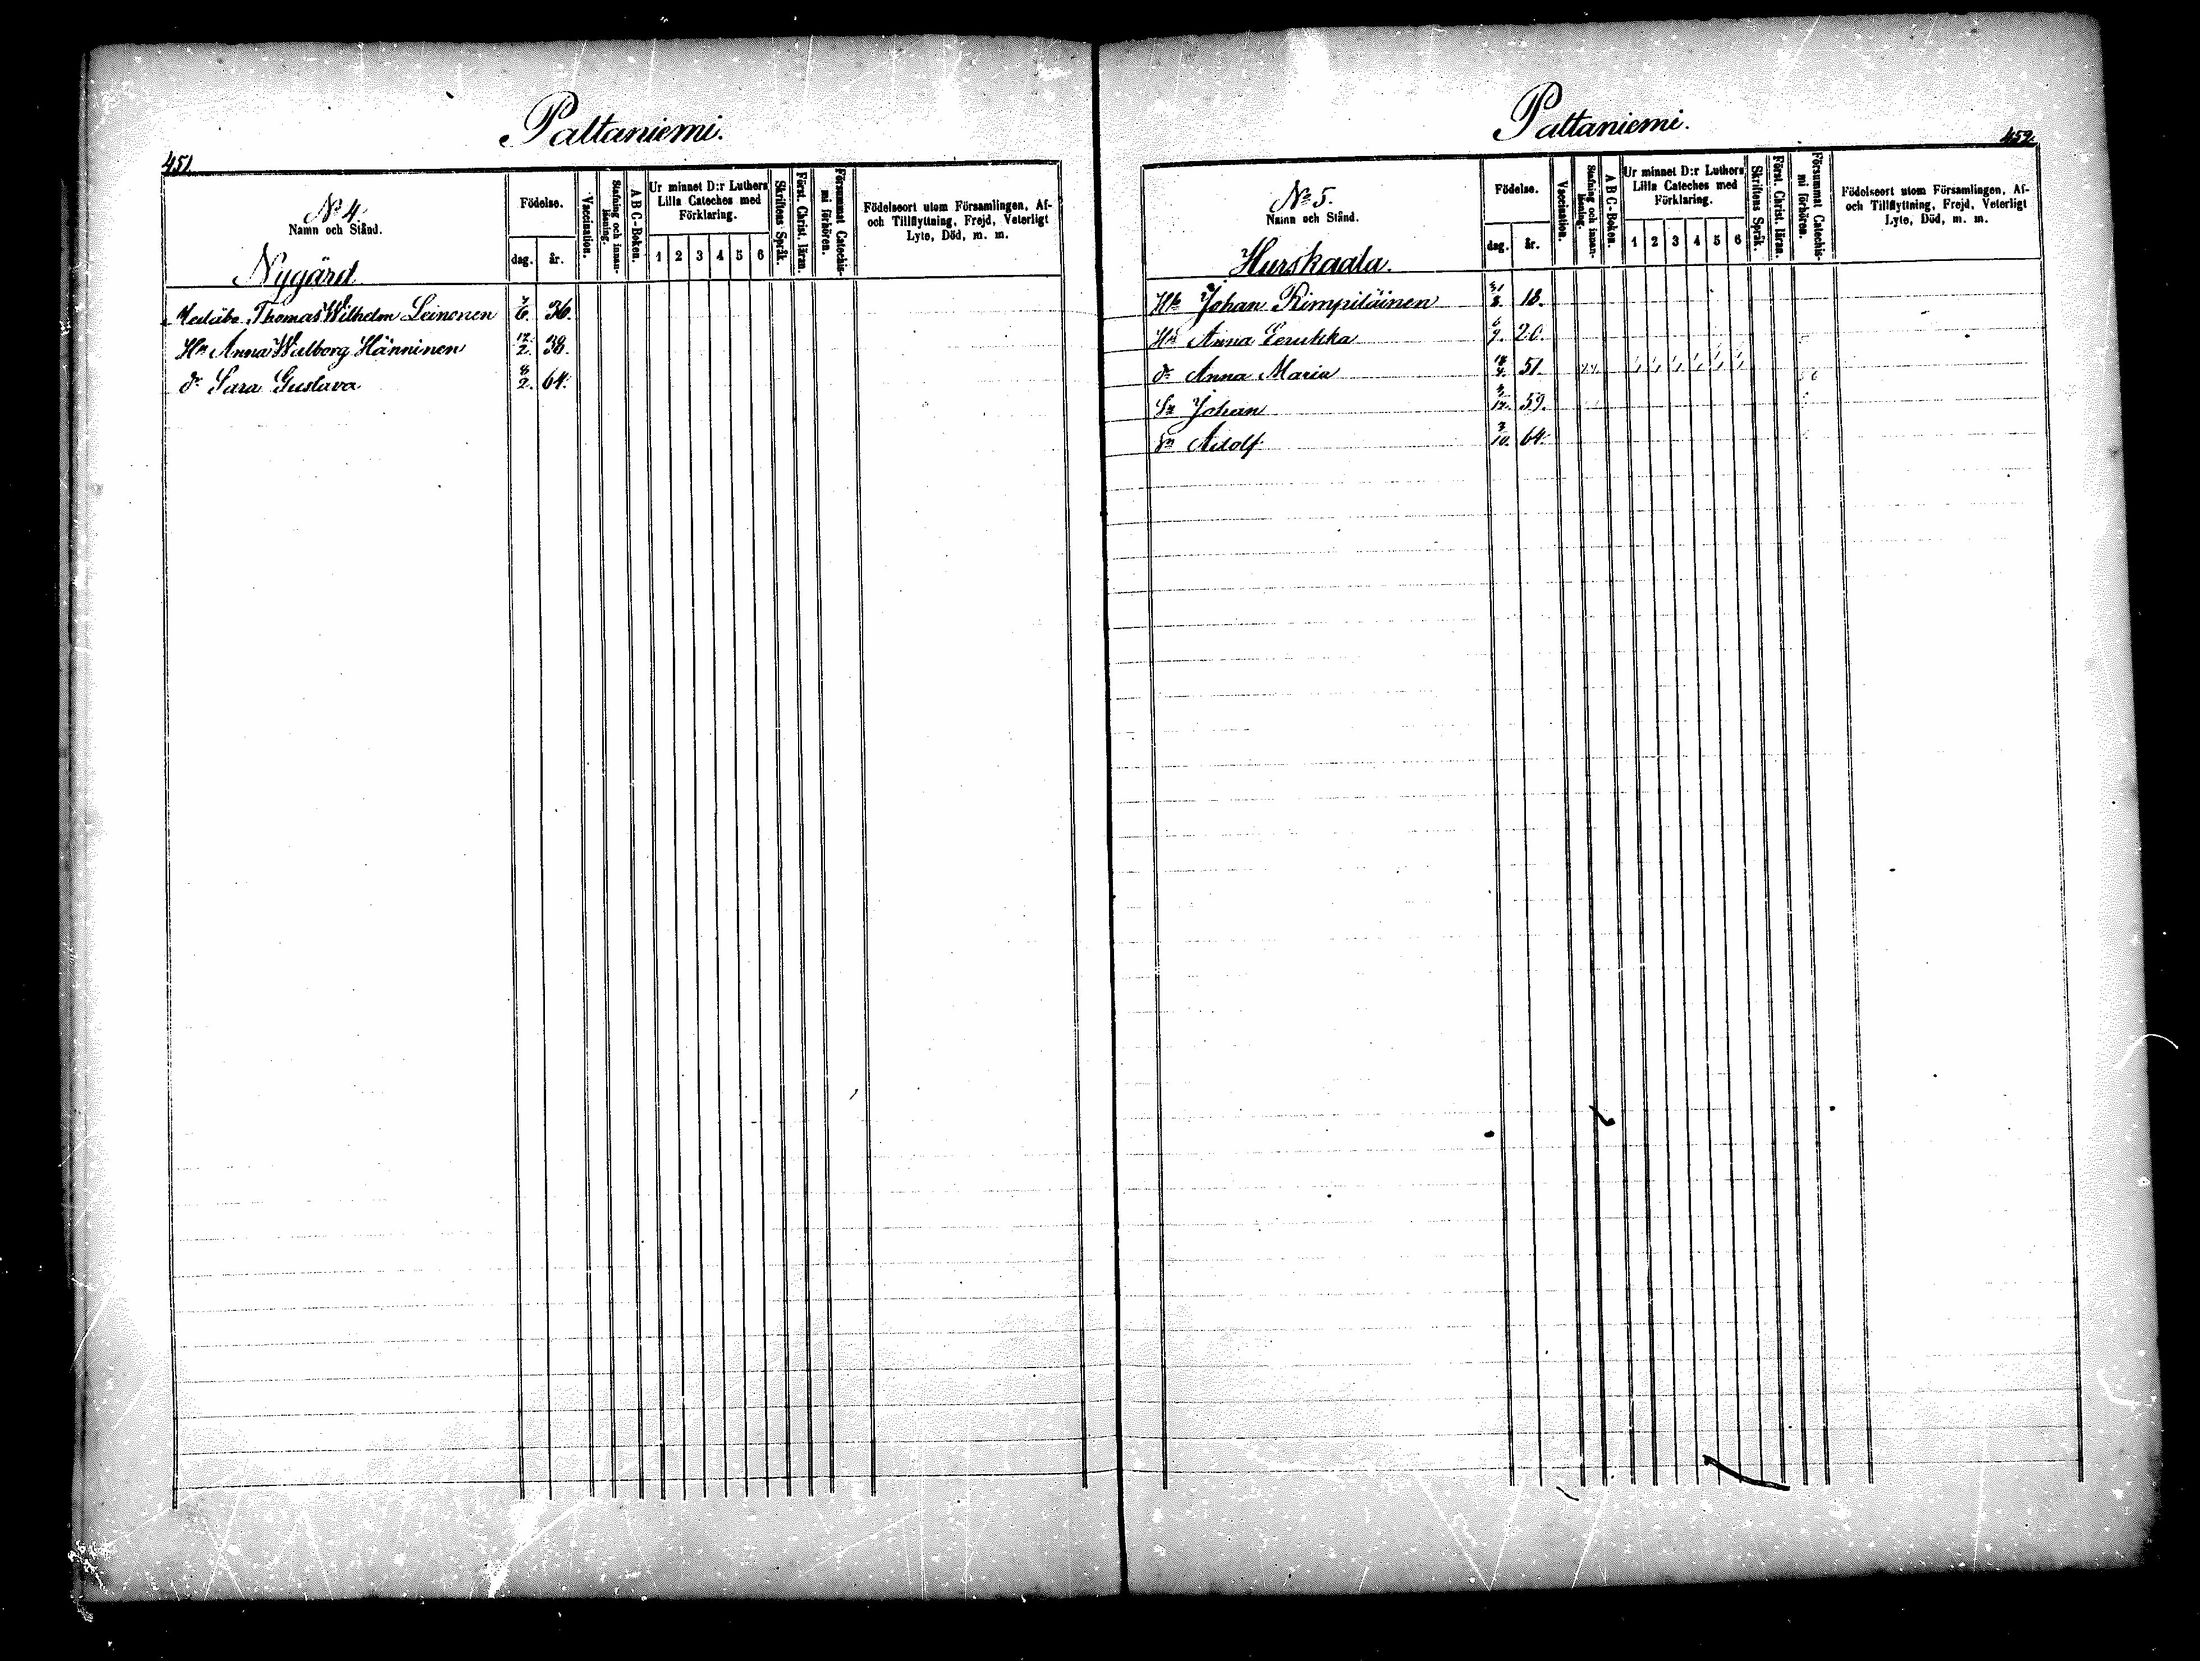 Paltaniemi.
451
No 4.
Namn och Stånd.
Nygård
Födelse.
dag. år.
Vaccination.
Stafning och innan-läsning.
A B C-Boken.
Ur minnet D:r Luthers Lilla Cateches med Förklaring.
1 2 3 4 5 6
Skriftens Språk.
Först. Christ. läran.
Försummat Catechis-mi förhören.
Födelseort utom Församlingen, Af- och Tillflyttning, Frejd, Veterligt Lyte, Död, m. m.
Thomas Wilhelm Leinonen 6. 36.
Hu Anna Walborg Hänninen 12/2. 38.
dr Sara Gustava 8/2. 64.
Paltaniemi.
452.
No 5.
Namn och Stånd.
Hurskaala.
Födelse.
dag. år.
Vaccination.
Stafning och innan-läsning.
A B C-Boken.
Ur minnet D:r Luthers Lilla Cateches med Förklaring.
1 2 3 4 5 6
Skriftens Språk.
Först. Christ. läran.
Försummat Catechis-mi förhören.
Födelseort utom Församlingen, Af- och Tillflyttning, Frejd, Veterligt Lyte, Död, m. m.
Johan Rimpiläinen 31/8. 18.
Hu Anna 6/9. 20.
dr Anna Maria 18/4. 51.
Sn Johan 12. 59.
Sn Adolf 3/10. 64.